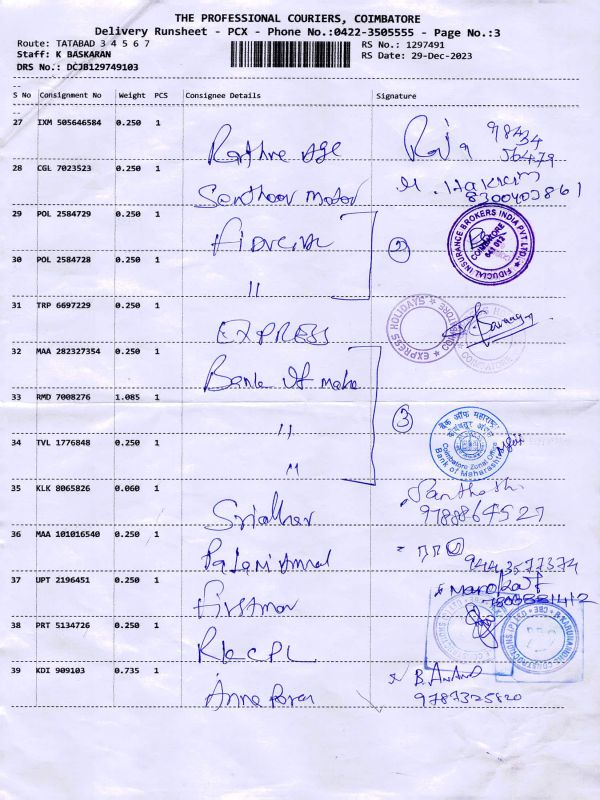 THE PROFESSIONAL COURIERS, COIMBATORE
Delivery Runsheet - PCX - Phone No.:0422-3505555 - Page No.:3
Route: TATABAD 3 4 5 6 7 RS No.: 1297491
Staff: K BASKARAN RS Date: 29-Dec-2023
DRS No.: DCJB129749103
S No Consignment No Weight PCS Consignee Details Signature
27 IXM 505646584 0.250 1
98434
56479
28 CGL 7023523 0.250 1
Santhoor motor M. Hakkim
8300403861
29 POL 2584729 0.250 1
② FIDUCIAL INSURANCE BROKERS INDIA PVT. LTD. COIMBATORE 641 012
30 POL 2584728 0.250 1
"
31 TRP 6697229 0.250 1
EXPRESS EXPRESS HOLIDAYS COIMBATORE
32 MAA 282327354 0.250 1
Bank of maha
33 RMD 7008276 1.085 1
" ③ बैंक ऑफ महाराष्ट्र
34 TVL 1776848 0.250 1
" Coimbatore Zonal Office Bank of Maharashtra
35 KLK 8065826 0.060 1
Sridhar 9788864527
36 MAA 101016540 0.250 1
9443577374
37 UPT 2196451 0.250 1
38 PRT 5134726 0.250 1
39 KDI 909103 0.735 1
B. Anand
9787325820